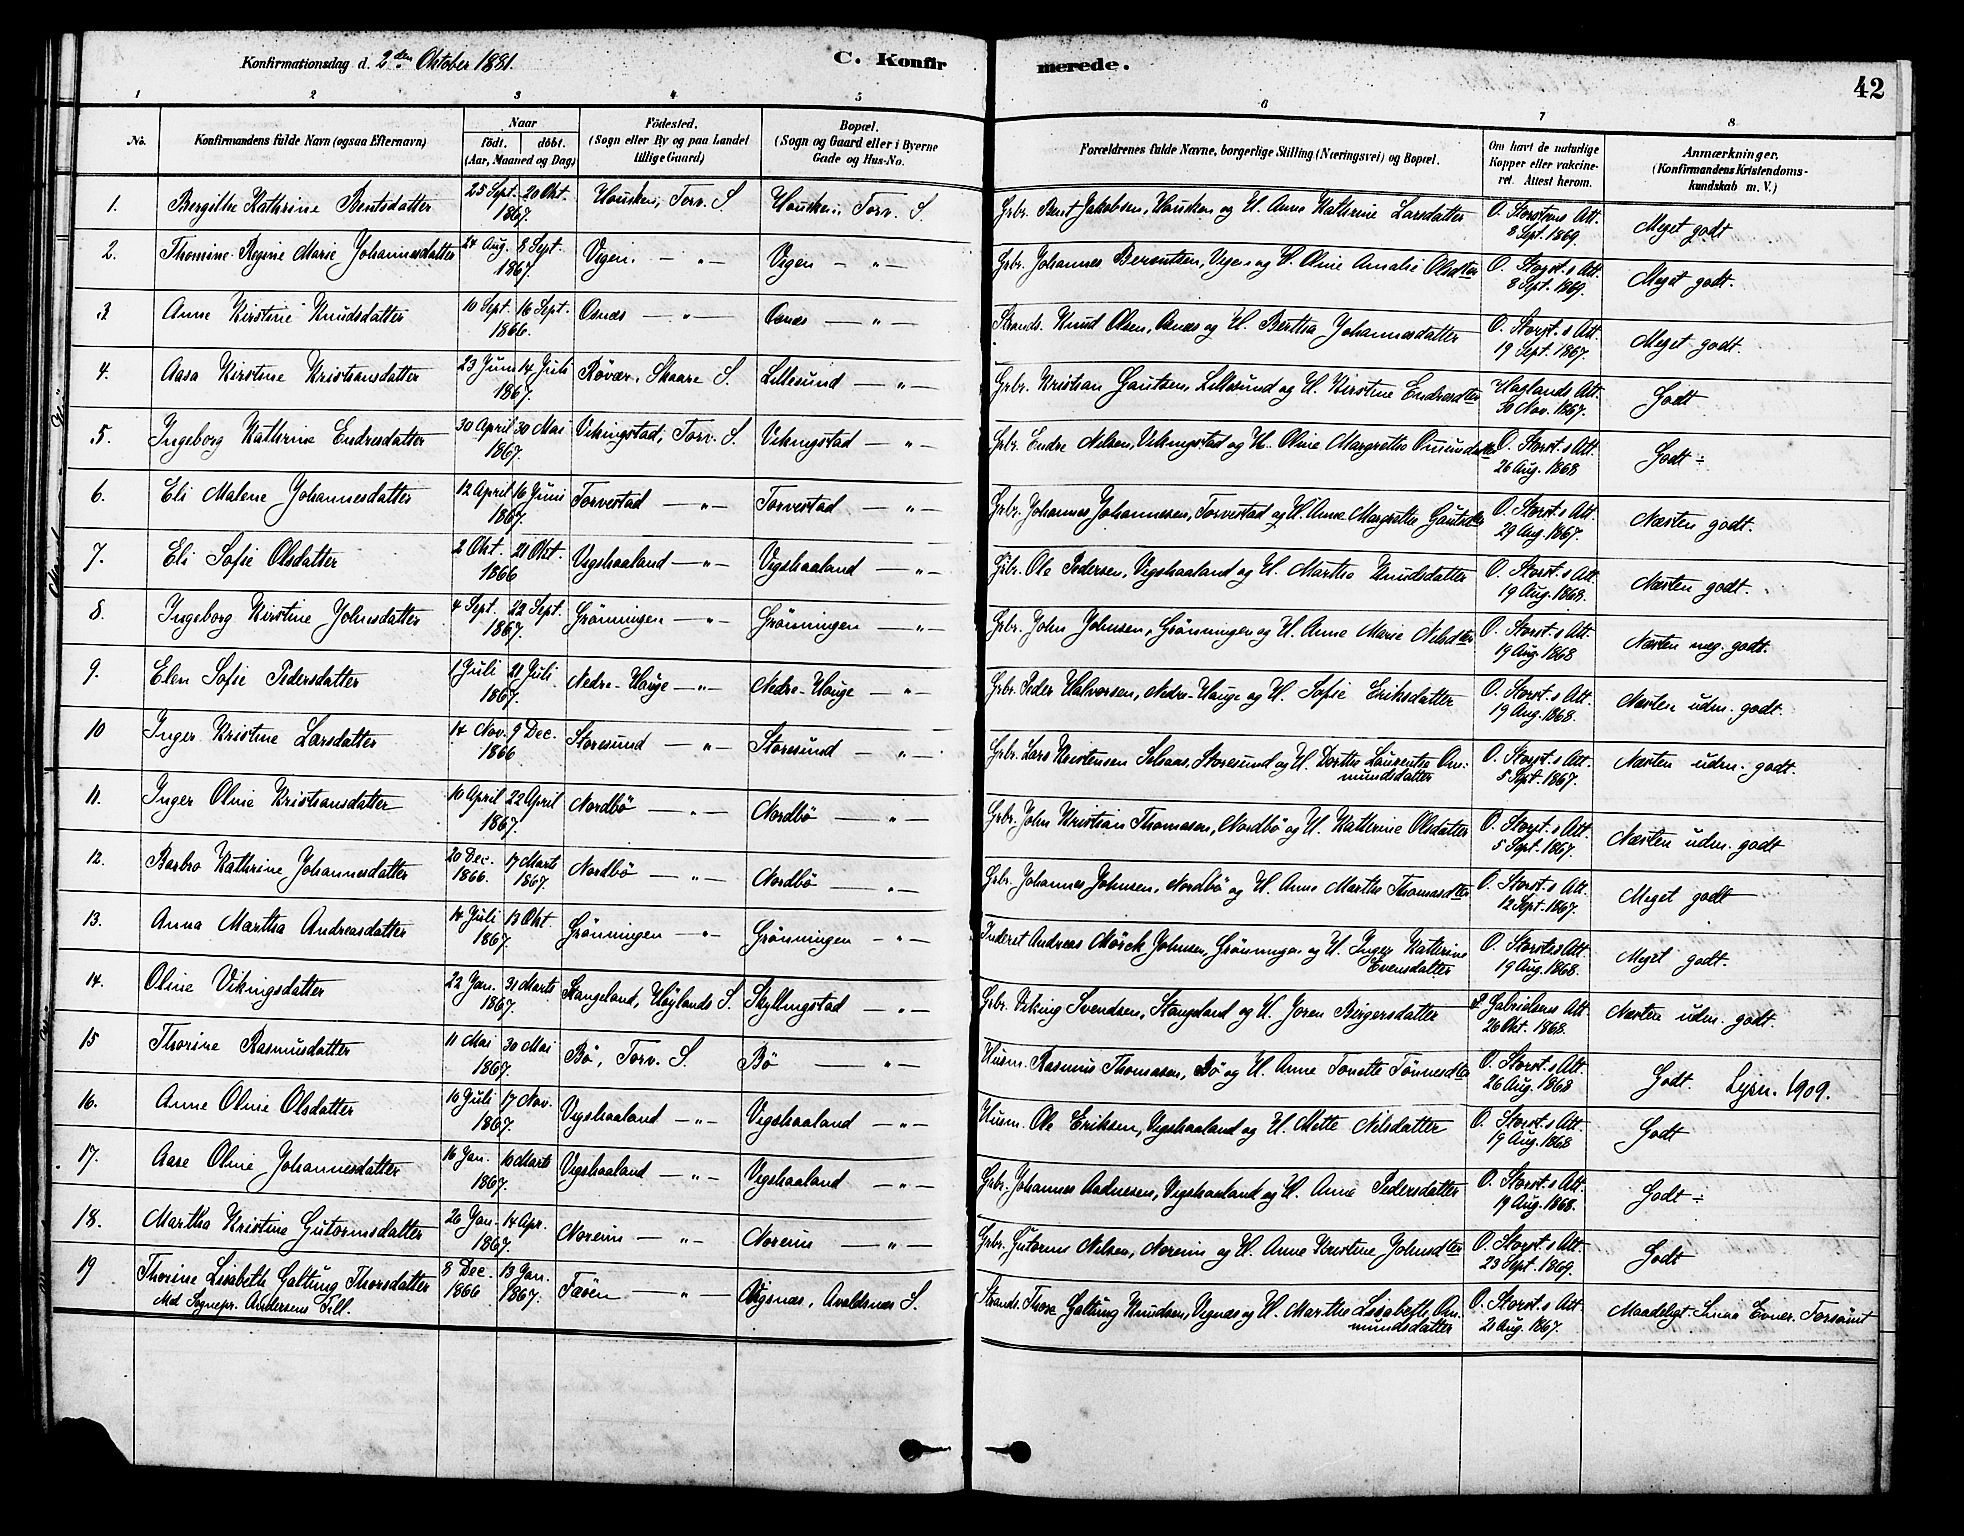 Konfirmationsdag d. 2den Oktober 1881.
C. Konfirmerede.
42
1 2 3 4 5 6 7 8
No.
Konfirmandens fulde Navn (ogsaa Efternavn)
Naar
födt. döbt.
(Aar, Maaned og Dag)
Födested.
(Sogn eller By og paa Landet
tillige Gaard)
Bopæl.
(Sogn og Gaard eller i Byerne
Gade og Hus-No.
Forældrenes fulde Navne, borgerlige Stilling (Næringsvei) og Bopæl.
Om havt de naturlige
Kopper eller vakcine-
ret. Attest herom.
Anmærkninger.
(Konfirmandens Kristendoms-
kundskab m. V.)
1. Bergithe Kathrine Bentsdatter 25 Sept. 1867. 20 Okt. Housken, Torv. S. Housken, Torv. S. Grbr. Bent Jakobsen, Housken og H. Anne Kathrine Larsdatter O. Storstens Att. 8 Sept. 1869. Meget godt
2. Thomine Regine Marie Johannesdatter 24 Aug. 8 Sept. 1867. Vegen — " — Vegen — " — Grbr. Johannes Berentsen, Vegen og H. Oline Amalie Olsdter O. Storst.s Att. 8 Sept. 1869. Meget godt.
3 Anne Kirstine Knudsdatter 10 Sept. 16 Sept. 1866. Osnæs — " — Osnæs — " — Strands. Knud Olsen, Osnæs og H. Bertha Johannesdatter O. Storst.s Att. 19 Sept. 1867. Meget godt.
4. Aasa Kirstine Kristiansdatter 23 Juni 14 Juli 1867. Røvær, Skaare S. Lillesund — " — Grbr. Kristian Gautsen, Lillesund og H. Kirstine Endresdter Haglands Att. 30 Nov. 1867. Godt
5. Ingeborg Kathrine Endresdatter 30 April 30 Mai 1867. Vikingstad, Torv. S. Vikingstad — " — Grbr. Endre Nilsen, Vikingstad og H. Oline Margrethe Omundsdter O. Storst.s Att. 26 Aug. 1868 Godt ÷
6. Eli Malene Johannesdatter 12 April 16 Juni 1867. Torvestad — " — Torvestad — " — Grbr. Johannes Johannesen, Torvestad og H. Anne Margrethe Gautsdter O. Storst.s Att. 29 Aug. 1867. Næsten godt.
7. Eli Sofie Olsdatter 2 Okt. 21 Okt. 1866 Vegshaaland — " — Vegshaaland — " — Grbr. Ole Pedersen, Vegshaaland og H. Marthe Knudsdatter O. Storst.s Att. 19 Aug. 1868. Næsten godt.
8. Ingeborg Kirstine Johnsdatter 4 Sept. 22 Sept. 1867. Grönningen — " — Grönningen — " — Grbr. John Johnsen, Grönningen og H. Anne Marie Nilsdter O. Storst.s Att. 19 Aug. 1868 Næsten meg. godt.
9. Elen Sofie Pedersdatter 1 Juli 21 Juli 1867. Nedre-Hauge — " — Nedre-Hauge — " — Grbr. Peder Halvorsen, Nedre-Hauge og H. Sofie Eriksdatter O. Storst.s Att. 19 Aug. 1868. Næsten udm. godt.
10 Inger Kristine Larsdatter 14 Nov. 9 Dec. 1866 Storesund — " — Storesund — " — Grbr. Lars Kristensen Storesund og H. Dorthe Laurentse Om:mundsdatter O. Storst.s Att. 5 Sept. 1867. Næsten udm. godt.
11. Inger Oline Kristiansdatter 10 April 22 April 1867. Nordbö — " — Nordbö — " — Grbr. John Kristian Thomasen, Nordbö og H. Kathrine Olsdatter O. Storst.s Att. 5 Sept. 1867. Næsten udm. godt
12. Barbro Kathrine Johannesdatter 20 Dec. 1866. 17 Marts 1867. Nordbö — " — Nordbö — " — Grbr. Johannes Johnsen, Nordbö og H. Anne Marthe Thomasdter O. Storst.s Att. 12 Sept. 1867. Meget godt
13. Anna Martha Andreasdatter 14 Juli 13 Okt. 1867. Grönningen — " — Grönningen — " — Inderst Andreas Mörck Johnsen, Grönningen og H. Inger Kathrine Evensdatter O. Storst.s Att. 19 Aug. 1868. Meget godt.
14. Oline Vikingsdatter 22 Jan. 31 Marts 1867. Stangeland, Höylands S. Skyllingstad — " — Grbr. Viking Svendsen, Stangeland og H. Joren Birgersdatter Gabrielsens Att. 26 Okt. 1868. Næsten udm. godt.
15 Thorine Rasmusdatter 11 Mai 30 Mai 1867. Bö, Torv. S. Bö — " — Husm. Rasmus Thomasen, Bö og H. Anne Tonette Tönnesdter O. Storst.s Att. 26 Aug. 1868 Godt. Lysn. 1909.
16. Anne Oline Olsdatter 10 Juli 17 Nov. 1867. Vegshaaland — " — Vegshaaland — " — Husm. Ole Eriksen, Vegshaaland og H. Mette Nilsdatter O. Storst.s Att. 19 Aug. 1868 Godt
17. Aase Oline Johannesdatter 16 Jan. 10 Marts 1867. Vegshaaland — " — Vegshaaland — " — Grbr. Johannes Aadnesen, Vegshaaland og H. Anne Pedersdatter O. Storst.s Att. 19 Aug. 1868. Godt ÷
18. Martha Kristine Gutormsdatter 26 Jan. 14 Apr. 1867. Noreim — " — Noreim — " — Grbr. Gutorm Nilsen, Noreim og H. Anne Kristine Johnsdter O. Storst.s Att. 23 Sept. 1869. Godt
19 Thorine Lisabeth Galtung Thorsdatter 8 Dec. 1866 13 Jan. 1867. Fæöen — " — Vigsnæs, Avaldsnæs S. Strands. Thore Galtung Knudsen, Vignæs og H. Marthe Lisabeth Om:mundsdatter O. Storst.s Att 21 Aug. 1867. Maadeligt. Smaa Evner. Forsömt
Med Sognepr. Andersens Till.